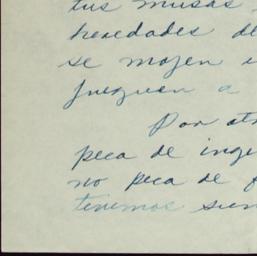 tus musas
heredades de
se mojen
jueguen a
Por otr
peca de inge
no peca de f
tenemos sien